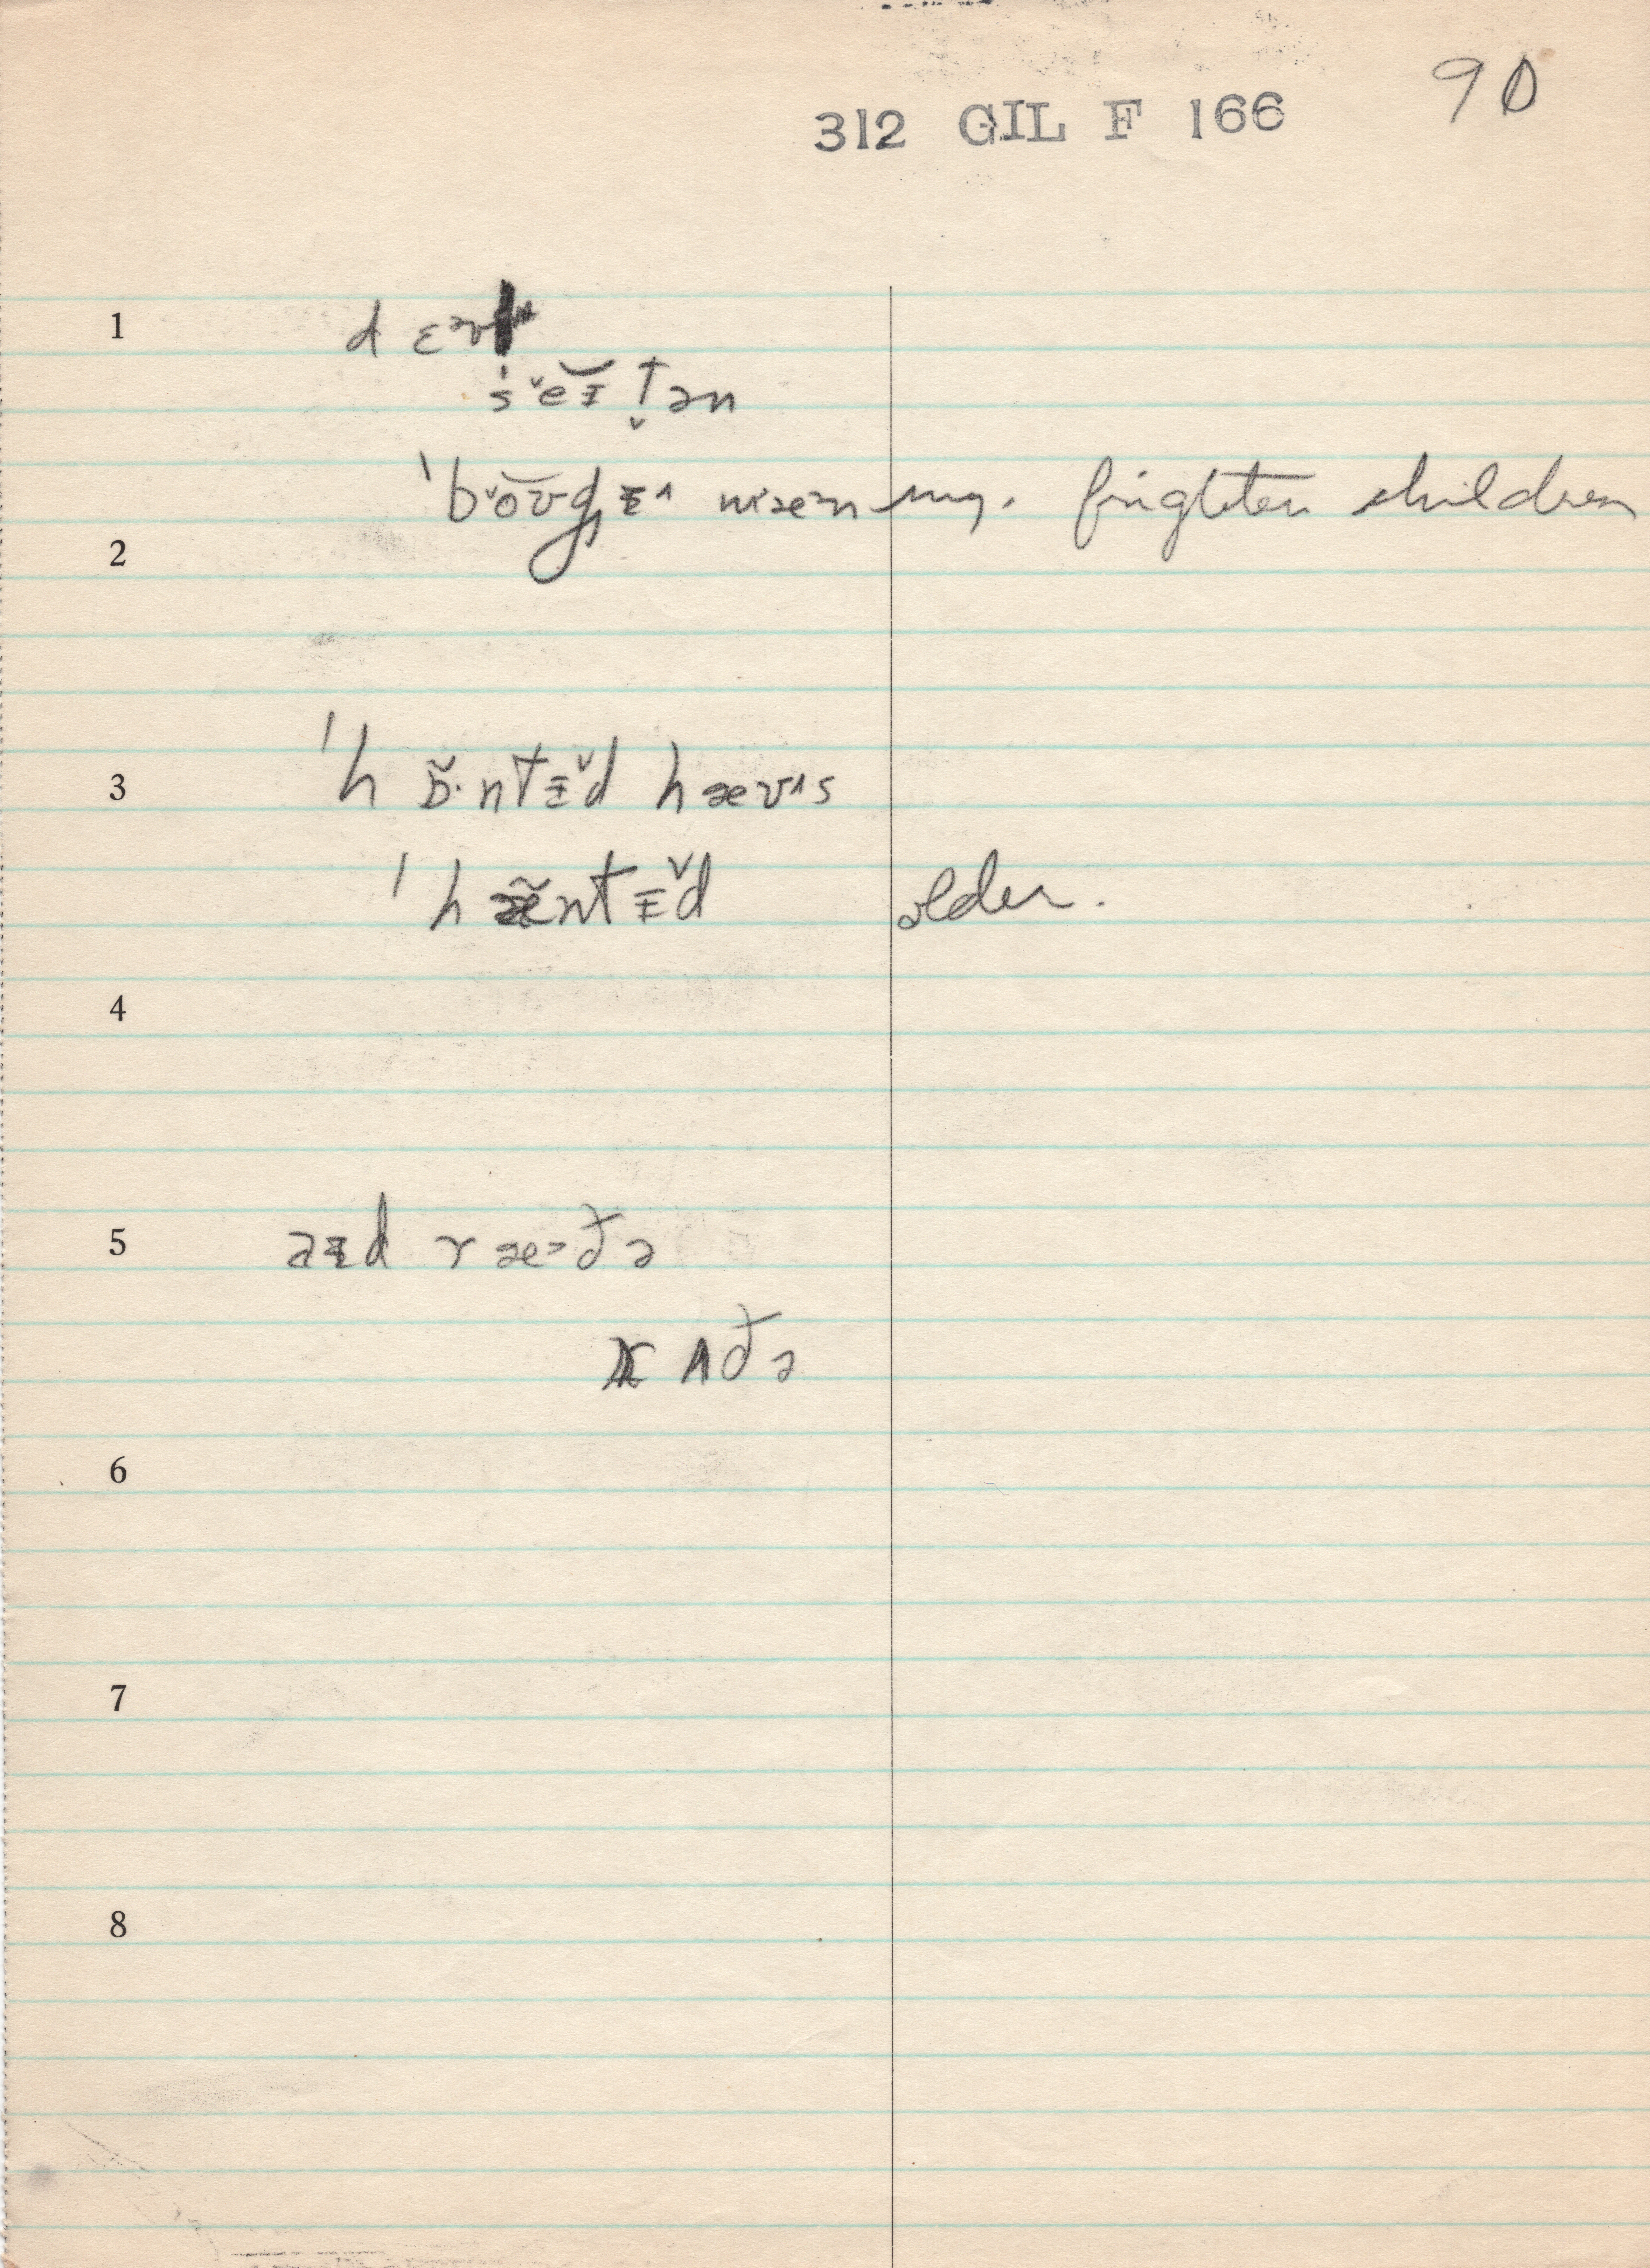 90
312 GIL F 166
1 d ɛᵊv
ˈs ˇeɪ̆ t̬ən
ˈbˇoʊgɪ˄ mæn my. frighten children
2
3 ˈh ɒ̃·ntɪ̌d hæʊ˄s
ˈh æ̃ntɪ̌d older.
4
5 aɪd ræ˃ðə
rʌðə
6
7
8